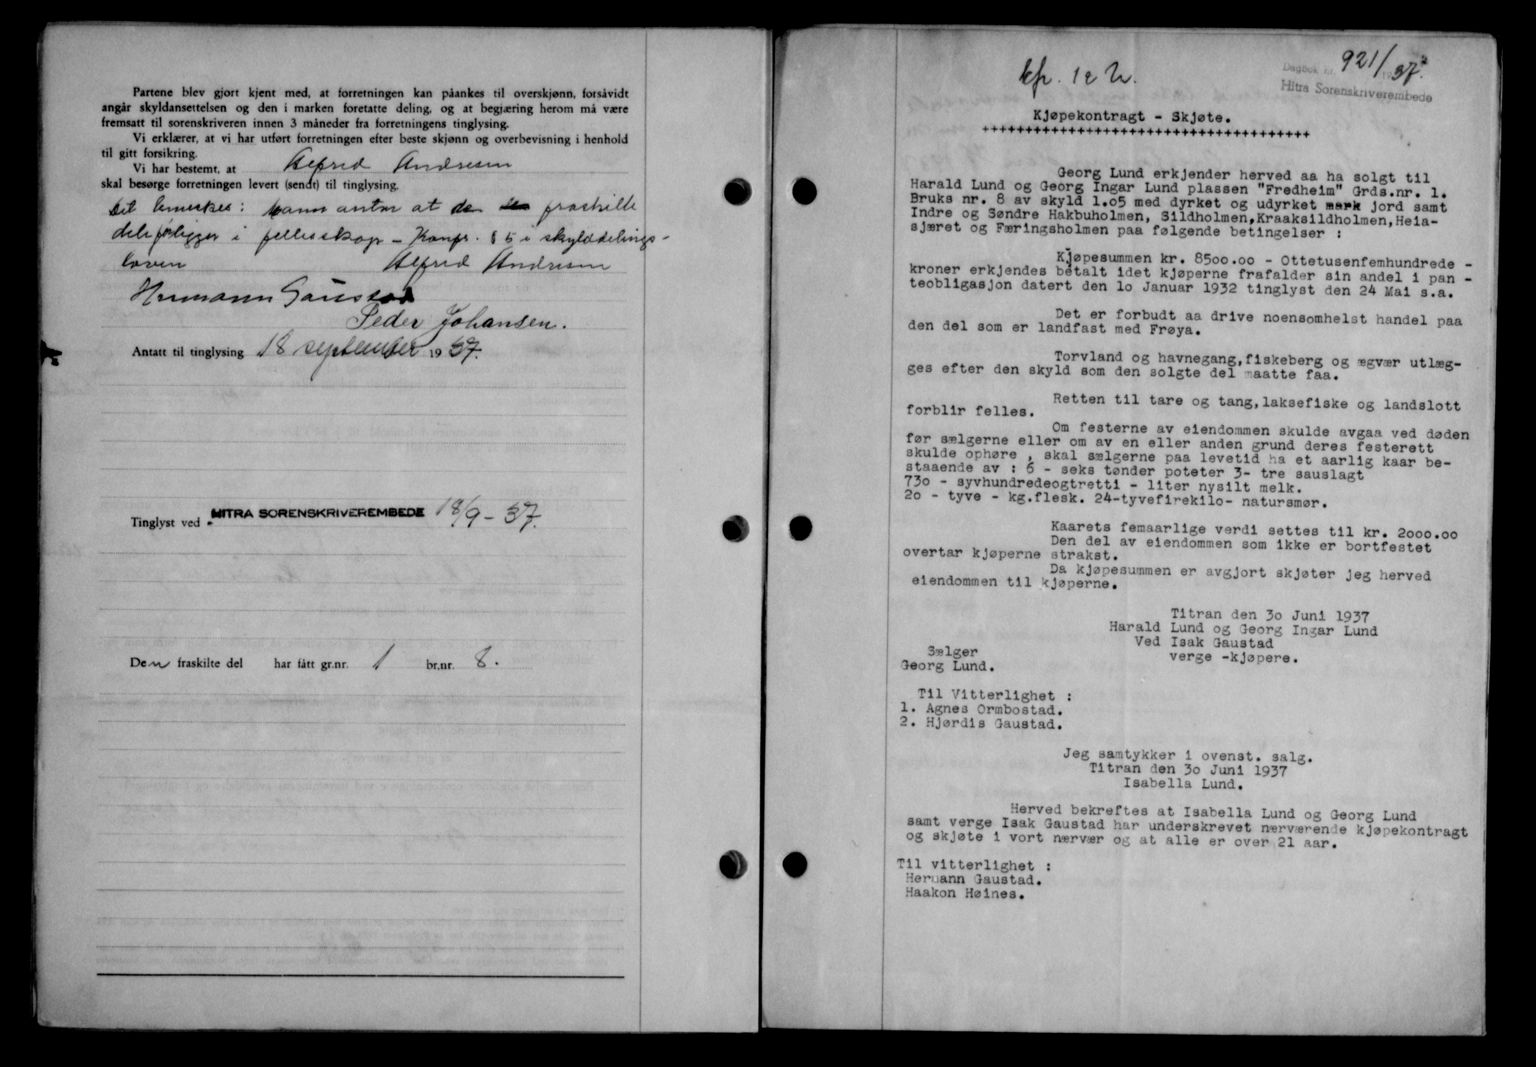 Partene blev gjort kjent med, at forretningen kan påankes til overskjønn, forsåvidt
angår skyldansettelsen og den i marken foretatte deling, og at begjæring herom må være
fremsatt til sorenskriveren innen 3 måneder fra forretningens tinglysing.
Vi erklærer, at vi har utført forretningen efter beste skjønn og overbevisning i henhold
til gitt forsikring.
Vi har bestemt, at Alfred Andresen
skal besørge forretningen levert (sendt) til tinglysing.
Det bemerkes: mann antar at de fraskilte
dele föligger i fellesskap – Konfr. § 5 i skylddelings-
loven Alfred Andresen
Hermann Gaustad
Peder Johansen.
Antatt til tinglysing 18 september 1937.
Tinglyst ved HITRA SORENSKRIVEREMBEDE 18/9-37.
Den fraskilte del har fått gr.nr. 1 br.nr. 8.
Dagbok nr. 921/1937.
Hitra Sorenskriverembede
Kjøpekontragt - Skjøte.
++++++++++++++++++++++++++++++++++++++
Georg Lund erkjender herved aa ha solgt til
Harald Lund og Georg Ingar Lund plassen "Fredheim" Grds.nr. 1.
Bruks nr. 8 av skyld 1.05 med dyrket og udyrket mark jord samt
Indre og Søndre Hakbuholmen, Sildholmen,Kraaksildholmen,Heia-
sjæret og Færingsholmen paa følgende betingelser :
Kjøpesummen kr. 8500.00 - Ottetusenfemhundrede -
kroner erkjendes betalt idet kjøperne frafalder sin andel i pan -
teobligasjon datert den 10 Januar 1932 tinglyst den 24 Mai s.a.
Det er forbudt aa drive noensomhelst handel paa
den del som er landfast med Frøya.
Torvland og havnegang,fiskeberg og ægvær utlæg-
ges efter den skyld som den solgte del maatte faa.
Retten til tare og tang,laksefiske og landslott
forblir felles.
Om festerne av eiendommen skulde avgaa ved døden
før sælgerne eller om av en eller anden grund deres festerett
skulde ophøre , skal sælgerne paa levetid ha et aarlig kaar be-
staaende av : 6 - seks tønder poteter 3- tre sauslagt
730 - syvhundredeogtretti - liter nysilt melk.
20 - tyve - kg.flesk. 24-tyvefirekilo- natursmør.
Kaarets femaarlige verdi settes til kr. 2000.00
Den del av eiendommen som ikke er bortfestet
overtar kjøperne strakst.
Da kjøpesummen er avgjort skjøter jeg herved
eiendommen til kjøperne.
Titran den 30 Juni 1937
Harald Lund og Georg Ingar Lund
Ved Isak Gaustad
verge -kjøpere.
Sælger
Georg Lund.
Til Vitterlighet :
1. Agnes Ormbostad.
2. Hjørdis Gaustad.
Jeg samtykker i ovenst. salg.
Titran den 30 Juni 1937
Isabella Lund.
Herved bekreftes at Isabella Lund og Georg Lund
samt verge Isak Gaustad har underskrevet nærværende kjøpekontragt
og skjøte i vort nærvær og at alle er over 21 aar.
Til vitterlighet :
Hermann Gaustad.
Haakon Høines.